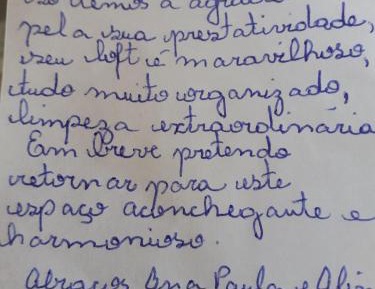 temos a agradecer
pela sua prestatividade,
seu loft é maravilhoso,
tudo muito organizado,
limpeza extraordinária
Em breve pretendo
retornar para este
espaço aconchegante e
harmonioso.
Abraços Ana Paula e